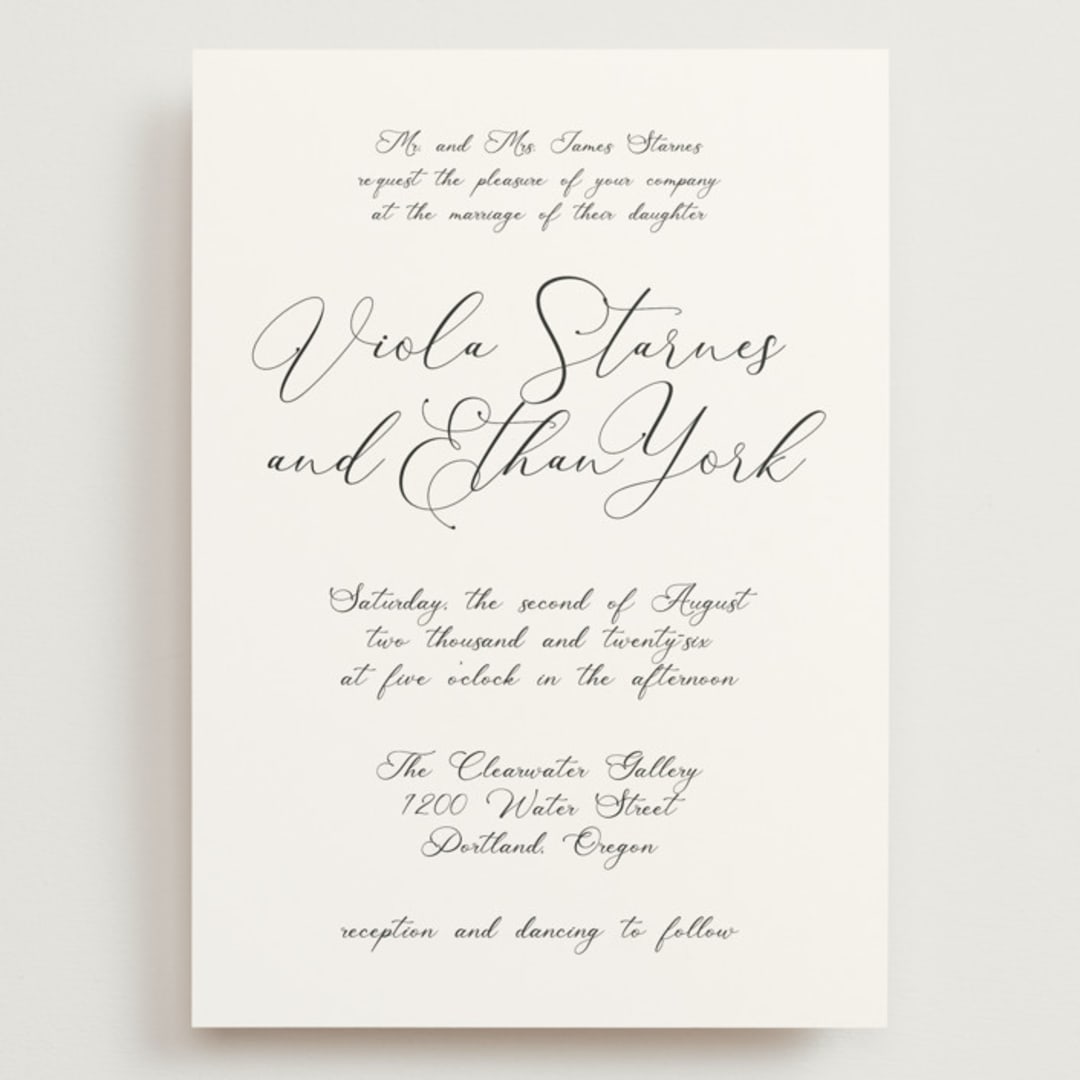 Mr. and Mrs. James Starnes
request the pleasure of your company
at the marriage of their daughter
Viola Starnes
and Ethan York
Saturday, the second of August
two thousand and twenty-six
at five o'clock in the afternoon
The Clearwater Gallery
1200 Water Street
Portland, Oregon
reception and dancing to follow